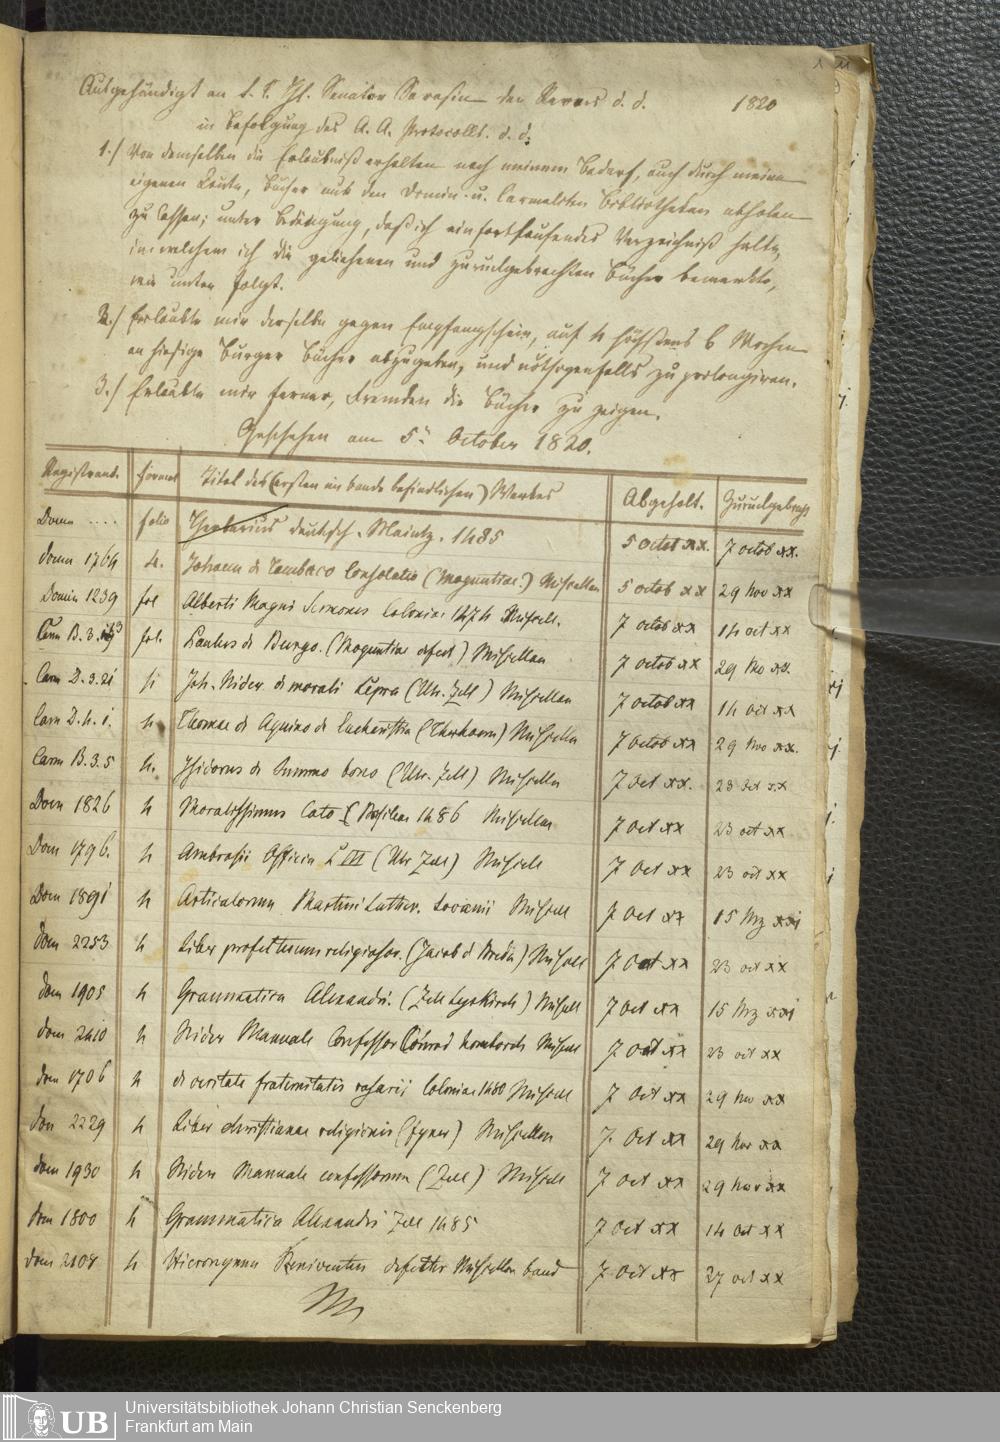 Ausgehändigt an S. T. Hl. Senator Sarasin den Revers d. d. 1820
in Befolgung des A. A. Protocolls. d. d.
1./ Von demselben die Erlaubniß erhalten nach meinem Bedarf, auch durch meine
eigenen Leute, Bücher aus den Domin. u. Carmeliten Bibliotheken abholen
zu lassen; unter Bedingung, daß ich ein fortlaufendes Verzeichniß halte,
in welchem ich die geliehenen und zurückgebrachten Bücher bemerkte,
wie unten folgt.
2./ Erlaubte mir derselbe gegen Empfangschein, auf 4 höchstens 6 Wochen
an hiesige Burger Bücher abzugeben, und nöthigenfalls zu prolongiren.
3./ Erlaubte mir ferner, Fremden die Bücher zu zeigen.
Geschehen am 5n October 1820.
Registrand. Format Titel des (ersten im bande befindlichen) Werkes Abgeholt. Zurückgebracht
Domn .... folio deutsch. Maintz. 1485 5 octob xx. 7 octob xx.
Domn 1764 4. Johann de Tambaco Consolatio (Moguntiae.) Miscellan 5 octob xx 29 Nov xx
Domin 1239 fol Alberti Magni Sermones Coloniae 1474 Miscell. 7 octob xx 14 oct xx
Carm B. 3. fol. Paulus de Burgo. (Moguntiae defect) Miscellan 7 octob xx 29 No xx.
Carm D. 3. 21 Joh. Nider de morali Lepra (Ulr. Zell) Miscellan 7 octob xx 14 oct xx
Carm D. 4. 1. 4 Thomae de Aquino de Eucharistia (Therhoern) Miscellan 7 Octob xx 29 Nov xx.
Carm B. 3. 5 4. Isidorus de summo bono (Ulr. Zell) Miscellan 7 Oct xx. 23 Oct xx
Dom 1826 4 Moralissimus Cato Basileae 1486 Miscellan 7 Oct xx 23 oct xx
Dom 1796. 4 Ambrosii Officia L III (Ulr Zell) Miscell 7 Oct xx 23 oct xx
Dom 1891 4 Articulorum Martini Luther. Lovanii Miscell 7 Oct xx 15 Mrz xxi
Dom 2253 4 Liber profectuum religiosor. (Jacob d Breda) Miscell 7 Oct xx 23 oct xx
Dom 1905 4 Grammatica Alexandri. (Zell Lyskirch) Miscell 7 Oct xx 15 Mrz xxi
Dom 2410 4 Nider Manuale Confessor Conrad homborch Miscell 7 Oct xx 23 oct xx
Dom 1706 4 de veritate fraternitatis rosarii Coloniae 1480 Miscell 7 Oct xx 29 Nov xx
Dom 2229 4 Liber christianae religionis Miscellan 7. Oct xx 29 Nov xx
Dom 1930 4 Nideri Manuale confessorum (Zell) Miscell 7 Oct xx 29 Nov xx
Dom 1800 4 Grammatica Alexandri Zell 1485 7 Oct xx 14 Oct xx
Dom 2108 4 Miscellan band 7 Oct xx 27 oct xx
UB Universitätsbibliothek Johann Christian Senckenberg
Frankfurt am Main